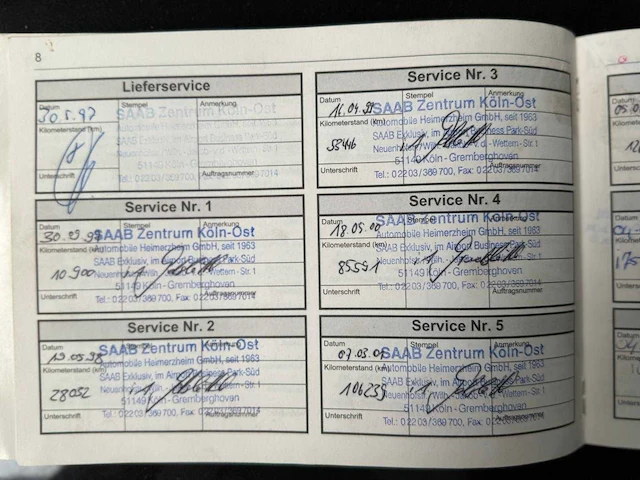 8
Lieferservice
Datum Stempel Anmerkung
30.5.97 SAAB Zentrum Köln-Ost
Automobile Heimerzheim GmbH, seit 1963
Kilometerstand (km)
SAAB Exklusiv, im Airport Business Park-Süd
51149 Köln - Gremberghoven
Unterschrift Auftragsnummer
Tel.: 02203/369700, Fax: 02203/3697014
Service Nr. 1
Datum Stempel Anmerkung
SAAB Zentrum Köln-Ost
Automobile Heimerzheim GmbH, seit 1963
Kilometerstand (km)
SAAB Exklusiv, im Airport Business Park-Süd
10900
51149 Köln - Gremberghoven
Unterschrift Auftragsnummer
Tel.: 02203/369700, Fax: 02203/3697014
Service Nr. 2
Datum Stempel Anmerkung
19.05.98 SAAB Zentrum Köln-Ost
Automobile Heimerzheim GmbH, seit 1963
Kilometerstand (km)
SAAB Exklusiv, im Airport Business Park-Süd
28052
51149 Köln - Gremberghoven
Unterschrift
Tel.: 02203/369700, Fax: 02203/3697014
Service Nr. 3
Datum Stempel Anmerkung
16.04.99 SAAB Zentrum Köln-Ost
Automobile Heimerzheim GmbH, seit 1963
Kilometerstand (km)
SAAB Exklusiv, im Airport Business Park-Süd
53416
51149 Köln - Gremberghoven
Unterschrift Auftragsnummer
Tel.: 02203/369700, Fax: 02203/3697014
Service Nr. 4
Datum Stempel Anmerkung
18.05.00 SAAB Zentrum Köln-Ost
Automobile Heimerzheim GmbH, seit 1963
Kilometerstand (km)
SAAB Exklusiv, im Airport Business Park-Süd
85591
51149 Köln - Gremberghoven
Unterschrift Auftragsnummer
Tel.: 02203/369700, Fax: 02203/3697014
Service Nr. 5
Datum Stempel Anmerkung
07.03.01 SAAB Zentrum Köln-Ost
Automobile Heimerzheim GmbH, seit 1963
Kilometerstand (km)
SAAB Exklusiv, im Airport Business Park-Süd
106239
51149 Köln - Gremberghoven
Unterschrift
Tel.: 02203/369700, Fax: 02203/3697014